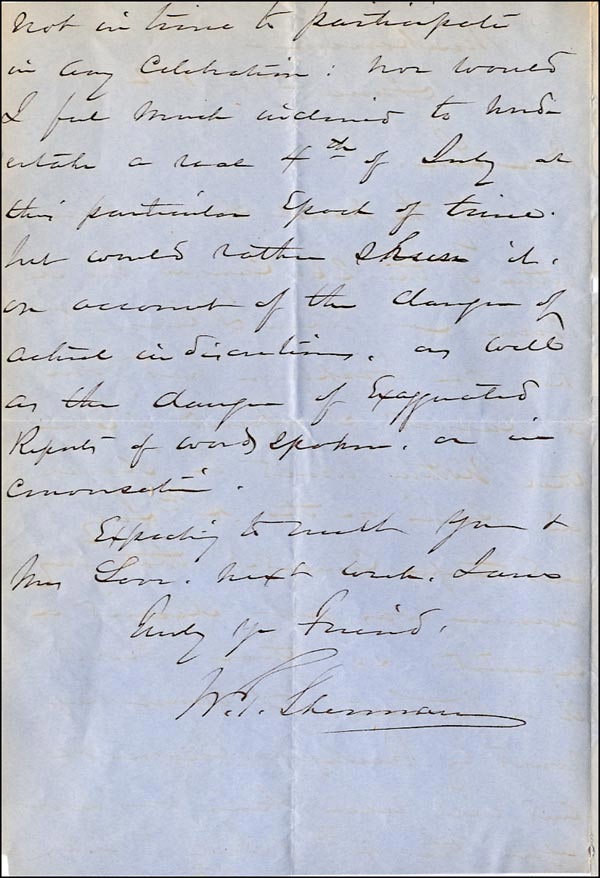 not in time to participate
in any Celebration: nor would
I feel much inclined to unde
rtake a real 4th of July at
this particular Epoch of time.
but would rather shun it.
on account of the danger of
actual indiscretions. as well
as the danger of Exaggerated
Reports of words spoken. or in
conversation.
Expecting to meet you &
Mrs next week. I am
Truly yr Friend.
W.T. Sherman